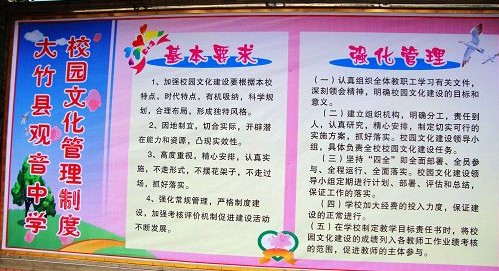 校园文化管理制度
大竹县观音中学
基本要求
1、加强校园文化建设要根据本校
特点，时代特点，有机吸纳，科学规
划，合理布局，形成独特风格。
2、因地制宜，切合实际，开辟潜
在能力和资源，凸现实效性。
3、高度重视，精心安排，认真实
施，不走形式，不摆花架子，不走过
场，抓好落实。
4、强化常规管理，严格制度建
设，加强考核评价机制促进建设活动
不断发展。
强化管理
（一）认真组织全体教职工学习有关文件，
深刻领会精神，明确校园文化建设的目标和
意义。
（二）建立组织机构，明确分工，责任到
人，认真研究，精心安排，制定切实可行的
实施方案，抓好落实。校园文化建设领导小
组，具体负责全校校园文化建设任务。
（三）坚持“四全”即全面部署、全员参
与、全程运行、全面落实。校园文化建设领
导小组定期进行计划、部署、评估和总结，
保证工作的落实。
（四）学校加大经费的投入力度，保证建
设的正常进行。
（五）在学校制定教学目标责任书时，将校
园文化建设的成绩列入各教师工作业绩考核
的范围，促进教师的主体参与。